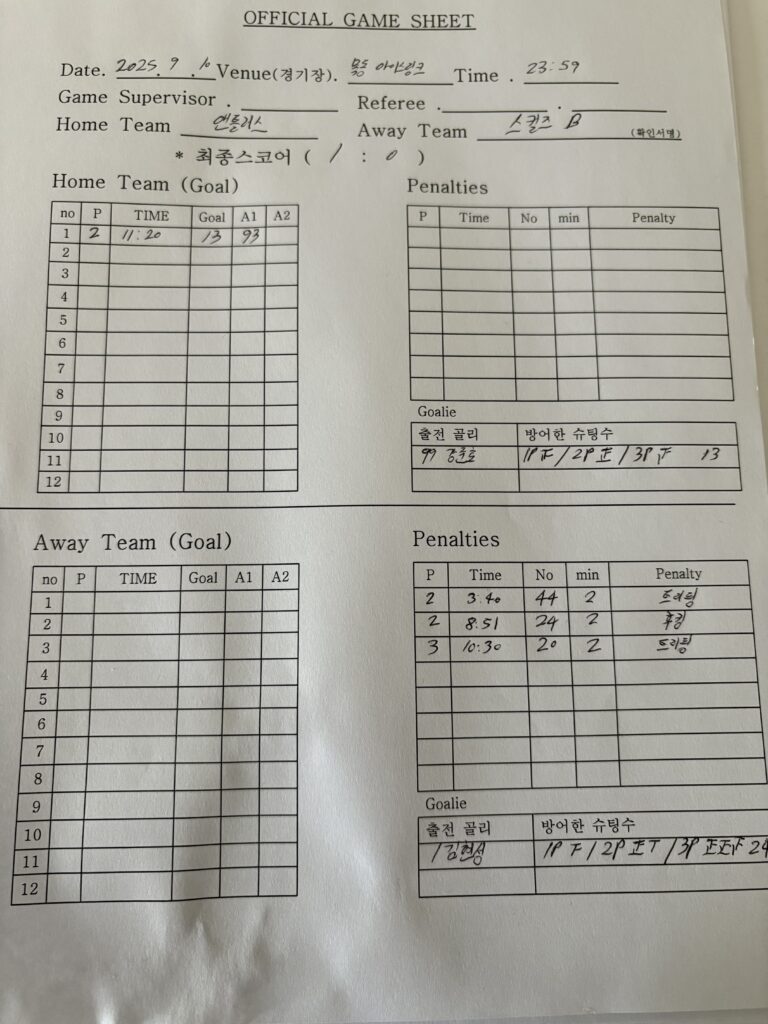 OFFICIAL GAME SHEET
Date. 2025. 9. 10 Venue(경기장). 목동 아이스링크 Time . 23:59
Game Supervisor . Referee . .
Home Team 앤틀러스 Away Team 스컬즈 B (확인서명)
* 최종스코어 ( 1 : 0 )
Home Team (Goal) Penalties
no P TIME Goal A1 A2 P Time No min Penalty
1 2 11:20 13 93
2
3
4
5
6
7
8
9 Goalie
10 출전 골리 방어한 슈팅수
11 99 1P / 2P / 3P 13
12
Away Team (Goal) Penalties
no P TIME Goal A1 A2 P Time No min Penalty
1 2 3:40 44 2 트리핑
2 2 8:51 24 2 후킹
3 3 10:30 20 2 트리핑
4
5
6
7
8
9 Goalie
10 출전 골리 방어한 슈팅수
11 1 김현성 1P / 2P / 3P 24
12